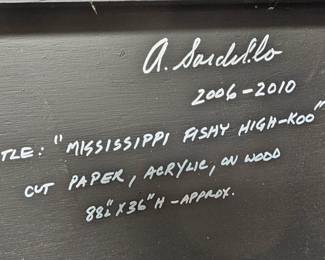 A. Sardello
2006-2010
TLE: "MISSISSIPPI FISHY HIGH-KOO"
CUT PAPER, ACRYLIC, ON WOOD
88½" X 36" H - APPROX.